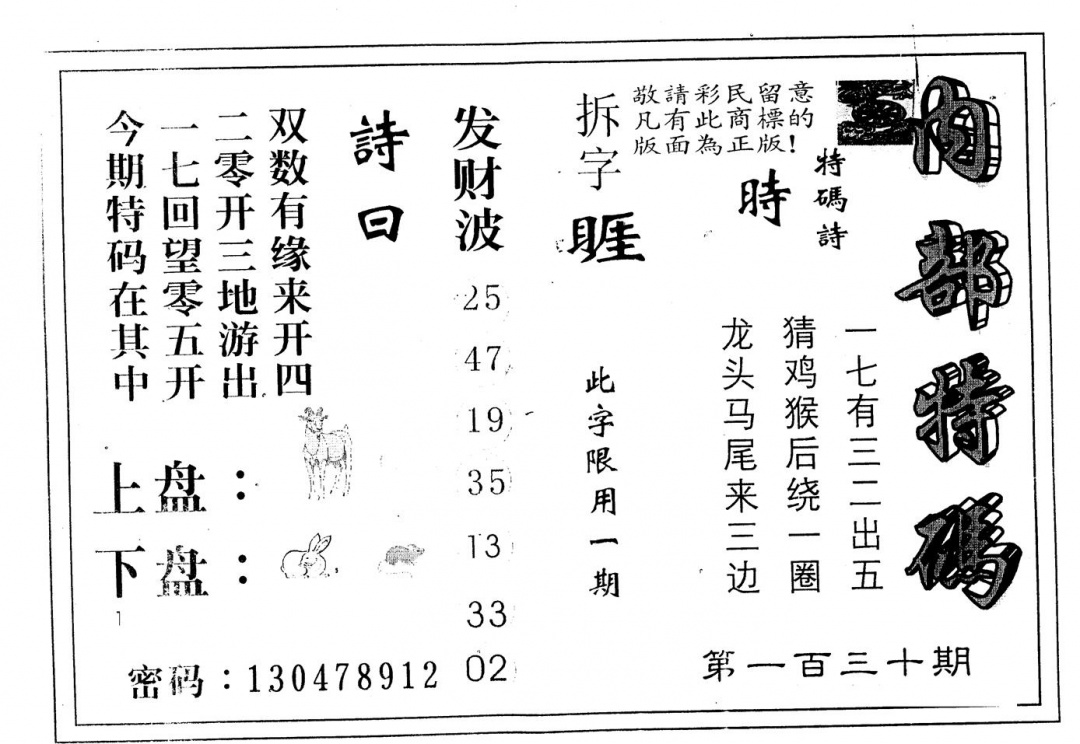 内部特碼
特碼詩
敬請彩民留意
凡有此商標的
版面為正版!
時
一七有三二出五
猜鸡猴后绕一圈
龙头马尾来三边
第一百三十期
拆字
睚
此字限用一期
发财波
25
47
19
35
13
33
02
詩曰
双数有缘来开四
二零开三地游出
一七回望零五开
今期特码在其中
上盘：
下盘：
密码：130478912